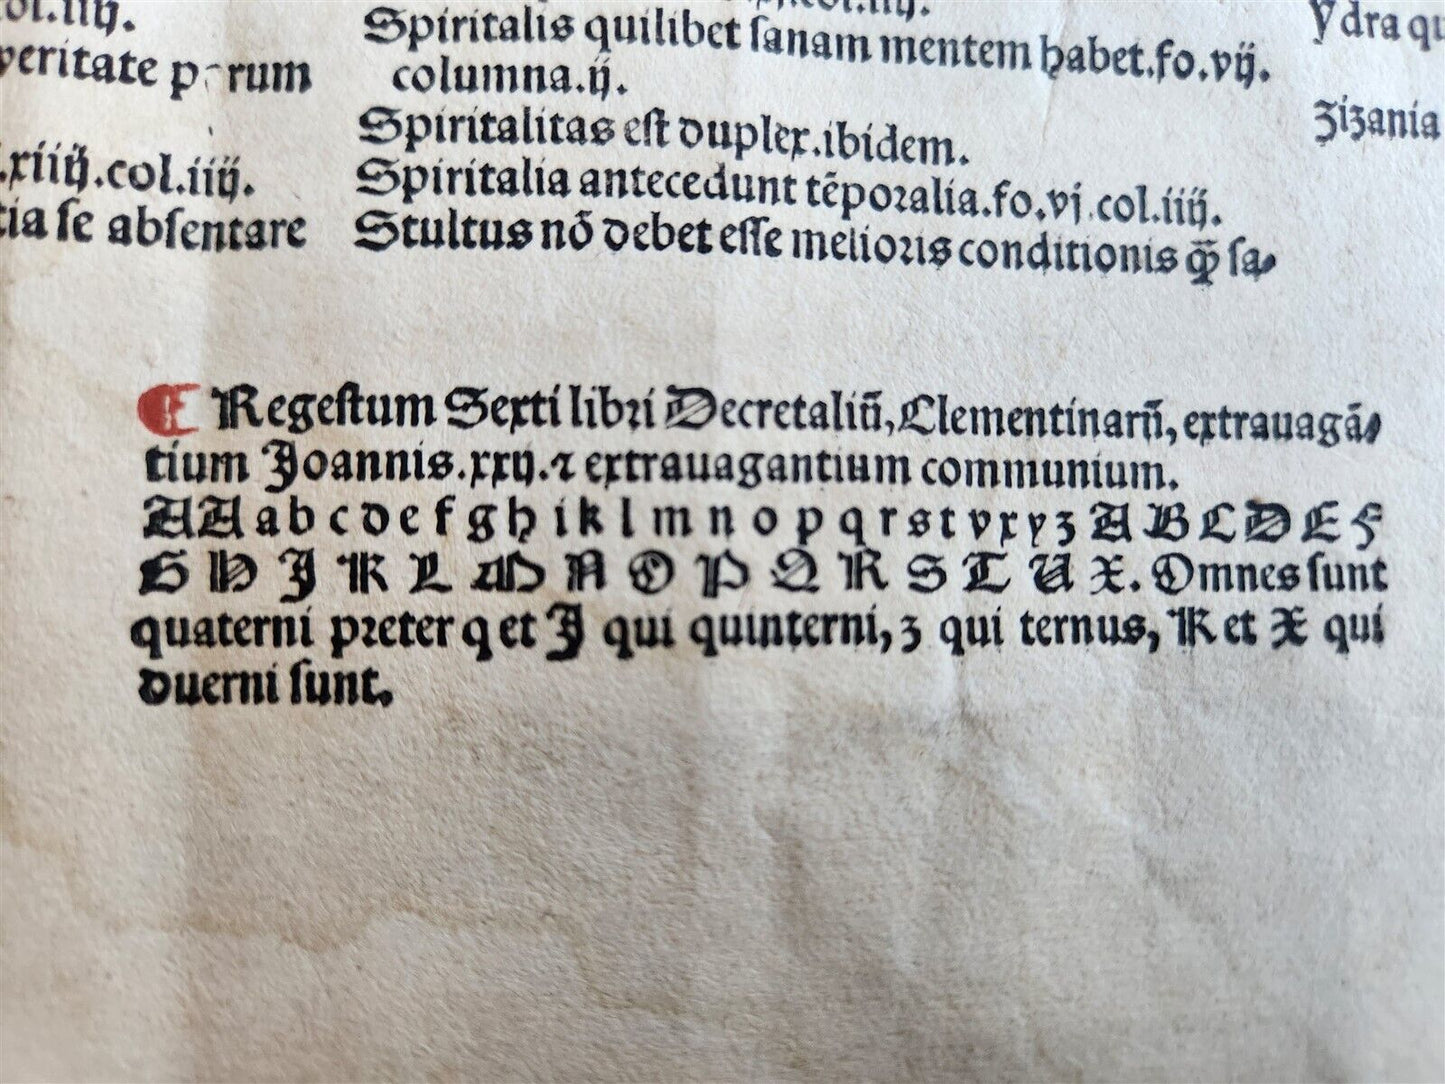 ol.iiij.
veritate parum
.xiiij.col.iiij.
tia ſe abſentare
Spiritalis quilibet ſanam mentem habet.fo.vij.
columna.ij.
Spiritalitas eſt duplex.ibidem.
Spiritalia antecedunt tēporalia.fo.vi.col.iiij.
Stultus nō debet eſſe melioris conditionis q̄ ſa⸗
Ydra qu
Zizania
¶ Regeſtum Sexti libri Decretaliū, Clementinarū, extrauagā⸗
tium Joannis.xxij.⁊ extrauagantium communium.
AA a b c d e f g h i k l m n o p q r s t v x y z A B C D E F
G H J K L M N O P Q R S T U X. Omnes ſunt
quaterni preter q et J qui quinterni, z qui ternus, K et X qui
duerni ſunt.